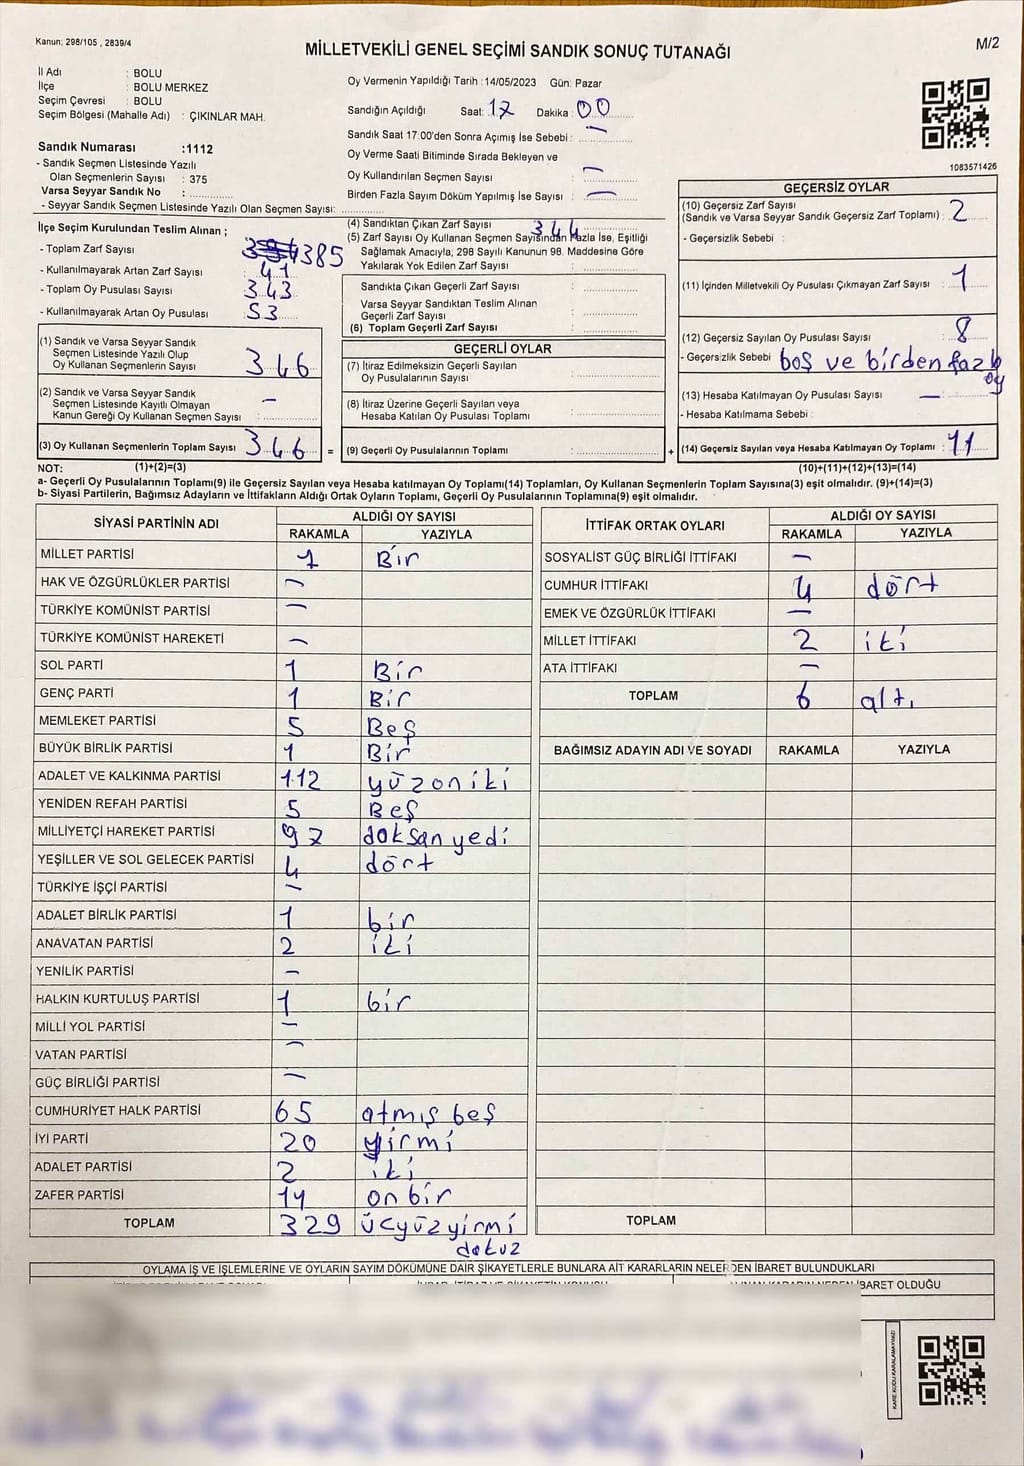 Kanun: 298/105 , 2839/4
MİLLETVEKİLİ GENEL SEÇİMİ SANDIK SONUÇ TUTANAĞI
M/2
İl Adı : BOLU
İlçe : BOLU MERKEZ
Seçim Çevresi : BOLU
Seçim Bölgesi (Mahalle Adı) : ÇIKINLAR MAH.
Oy Vermenin Yapıldığı Tarih :14/05/2023 Gün: Pazar
Sandığın Açıldığı Saat: 17 Dakika : 00
Sandık Saat 17:00'den Sonra Açımış İse Sebebi : —
Oy Verme Saati Bitiminde Sırada Bekleyen ve
Oy Kullandırılan Seçmen Sayısı : —
Birden Fazla Sayım Döküm Yapılmış İse Sayısı : —
1083571426
Sandık Numarası :1112
- Sandık Seçmen Listesinde Yazılı
Olan Seçmenlerin Sayısı : 375
Varsa Seyyar Sandık No :
- Seyyar Sandık Seçmen Listesinde Yazılı Olan Seçmen Sayısı:
İlçe Seçim Kurulundan Teslim Alınan ;
- Toplam Zarf Sayısı : 385
- Kullanılmayarak Artan Zarf Sayısı : 41
- Toplam Oy Pusulası Sayısı : 343
- Kullanılmayarak Artan Oy Pusulası : 53
(1) Sandık ve Varsa Seyyar Sandık
Seçmen Listesinde Yazılı Olup
Oy Kullanan Seçmenlerin Sayısı : 346
(2) Sandık ve Varsa Seyyar Sandık
Seçmen Listesinde Kayıtlı Olmayan
Kanun Gereği Oy Kullanan Seçmen Sayısı : —
(3) Oy Kullanan Seçmenlerin Toplam Sayısı : 346 =
(4) Sandıktan Çıkan Zarf Sayısı : 344
(5) Zarf Sayısı Oy Kullanan Seçmen Sayısından Fazla İse, Eşitliği
Sağlamak Amacıyla, 298 Sayılı Kanunun 98. Maddesine Göre
Yakılarak Yok Edilen Zarf Sayısı :
Sandıkta Çıkan Geçerli Zarf Sayısı :
Varsa Seyyar Sandıktan Teslim Alınan
Geçerli Zarf Sayısı :
(6) Toplam Geçerli Zarf Sayısı :
GEÇERLİ OYLAR
(7) İtiraz Edilmeksizin Geçerli Sayılan
Oy Pusulalarının Sayısı :
(8) İtiraz Üzerine Geçerli Sayılan veya
Hesaba Katılan Oy Pusulası Toplamı :
(9) Geçerli Oy Pusulalarının Toplamı : +
GEÇERSİZ OYLAR
(10) Geçersiz Zarf Sayısı
(Sandık ve Varsa Seyyar Sandık Geçersiz Zarf Toplamı) : 2
- Geçersizlik Sebebi :
(11) İçinden Milletvekili Oy Pusulası Çıkmayan Zarf Sayısı : 1
(12) Geçersiz Sayılan Oy Pusulası Sayısı : 8
- Geçersizlik Sebebi : boş ve birden fazla
oy
(13) Hesaba Katılmayan Oy Pusulası Sayısı : —
- Hesaba Katılmama Sebebi :
(14) Geçersiz Sayılan veya Hesaba Katılmayan Oy Toplamı : 11
NOT: (1)+(2)=(3) (10)+(11)+(12)+(13)=(14)
a- Geçerli Oy Pusulalarının Toplamı(9) ile Geçersiz Sayılan veya Hesaba katılmayan Oy Toplamı(14) Toplamları, Oy Kullanan Seçmenlerin Toplam Sayısına(3) eşit olmalıdır. (9)+(14)=(3)
b- Siyasi Partilerin, Bağımsız Adayların ve İttifakların Aldığı Ortak Oyların Toplamı, Geçerli Oy Pusulalarının Toplamına(9) eşit olmalıdır.
SİYASİ PARTİNİN ADI ALDIĞI OY SAYISI
RAKAMLA YAZIYLA
MİLLET PARTİSİ 1 Bir
HAK VE ÖZGÜRLÜKLER PARTİSİ —
TÜRKİYE KOMÜNİST PARTİSİ —
TÜRKİYE KOMÜNİST HAREKETİ —
SOL PARTİ 1 Bir
GENÇ PARTİ 1 Bir
MEMLEKET PARTİSİ 5 Beş
BÜYÜK BİRLİK PARTİSİ 1 Bir
ADALET VE KALKINMA PARTİSİ 112 yüzoniki
YENİDEN REFAH PARTİSİ 5 Beş
MİLLİYETÇİ HAREKET PARTİSİ 97 doksan yedi
YEŞİLLER VE SOL GELECEK PARTİSİ 4 dört
TÜRKİYE İŞÇİ PARTİSİ —
ADALET BİRLİK PARTİSİ 1 bir
ANAVATAN PARTİSİ 2 iki
YENİLİK PARTİSİ —
HALKIN KURTULUŞ PARTİSİ 1 bir
MİLLİ YOL PARTİSİ —
VATAN PARTİSİ —
GÜÇ BİRLİĞİ PARTİSİ —
CUMHURİYET HALK PARTİSİ 65 atmış beş
İYİ PARTİ 20 yirmi
ADALET PARTİSİ 2 iki
ZAFER PARTİSİ 11 on bir
TOPLAM 329 üçyüzyirmi
dokuz
İTTİFAK ORTAK OYLARI ALDIĞI OY SAYISI
RAKAMLA YAZIYLA
SOSYALİST GÜÇ BİRLİĞİ İTTİFAKI —
CUMHUR İTTİFAKI 4 dört
EMEK VE ÖZGÜRLÜK İTTİFAKI —
MİLLET İTTİFAKI 2 iki
ATA İTTİFAKI —
TOPLAM 6 altı
BAĞIMSIZ ADAYIN ADI VE SOYADI RAKAMLA YAZIYLA
TOPLAM
OYLAMA İŞ VE İŞLEMLERİNE VE OYLARIN SAYIM DÖKÜMÜNE DAİR ŞİKAYETLERLE BUNLARA AİT KARARLARIN NELERDEN İBARET BULUNDUKLARI
İBARET OLDUĞU
KARE KODU KARALAMAYINIZ!